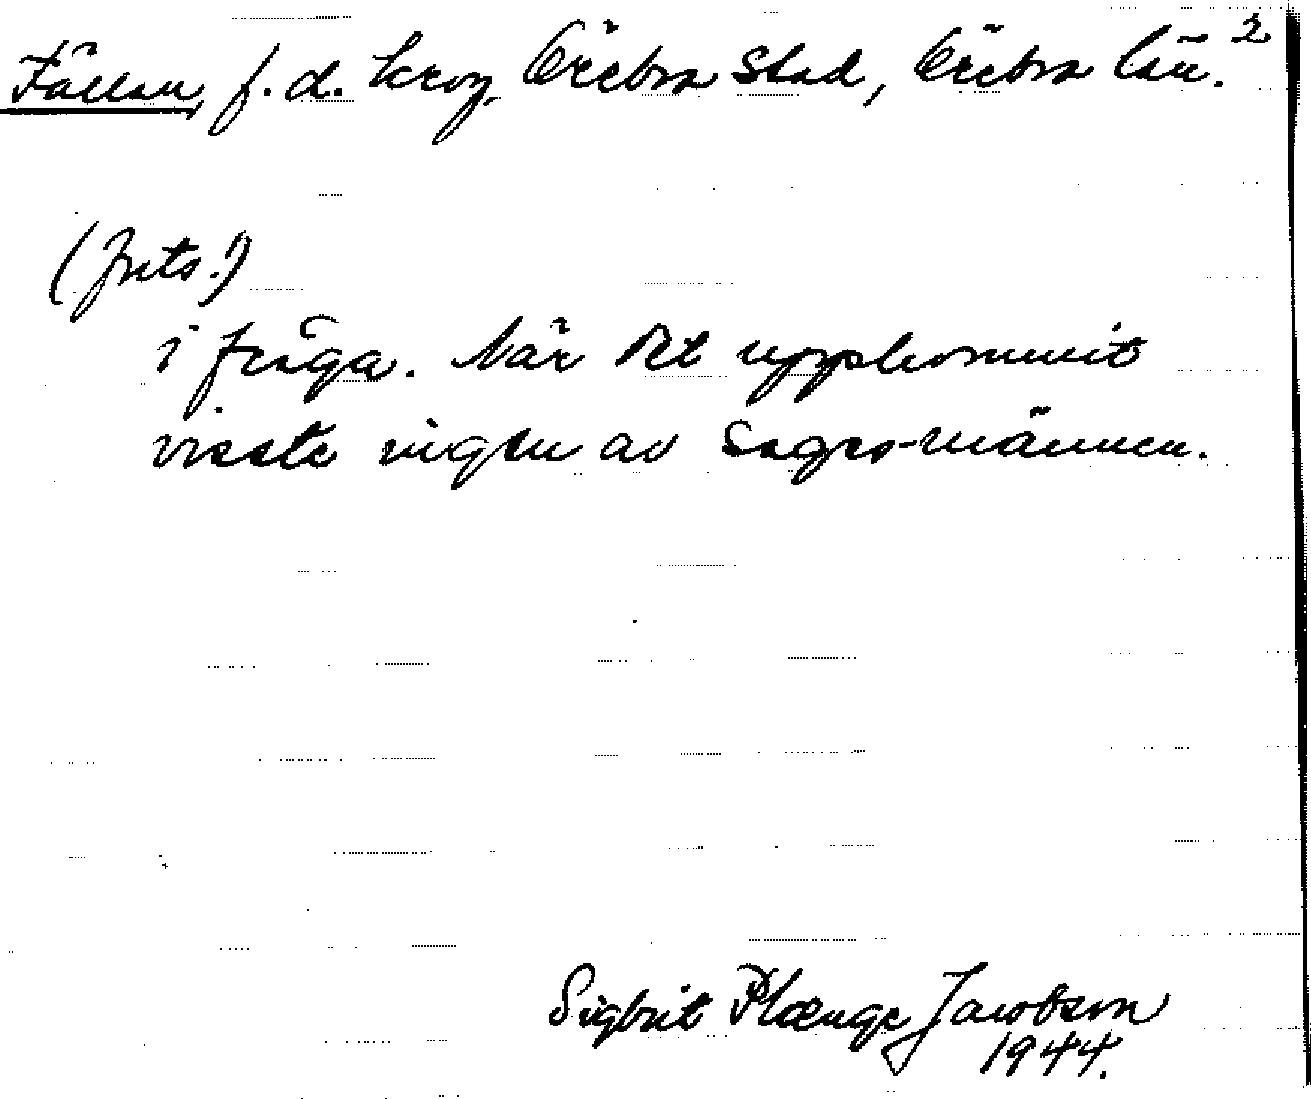 Fällan, f. d. krog, Örebro stad, Örebro län. 2
(forts.)
i fråga. När det uppkommit
visste ingen av sages-männen.
Sigbrit Plænge Jacobson
1944.